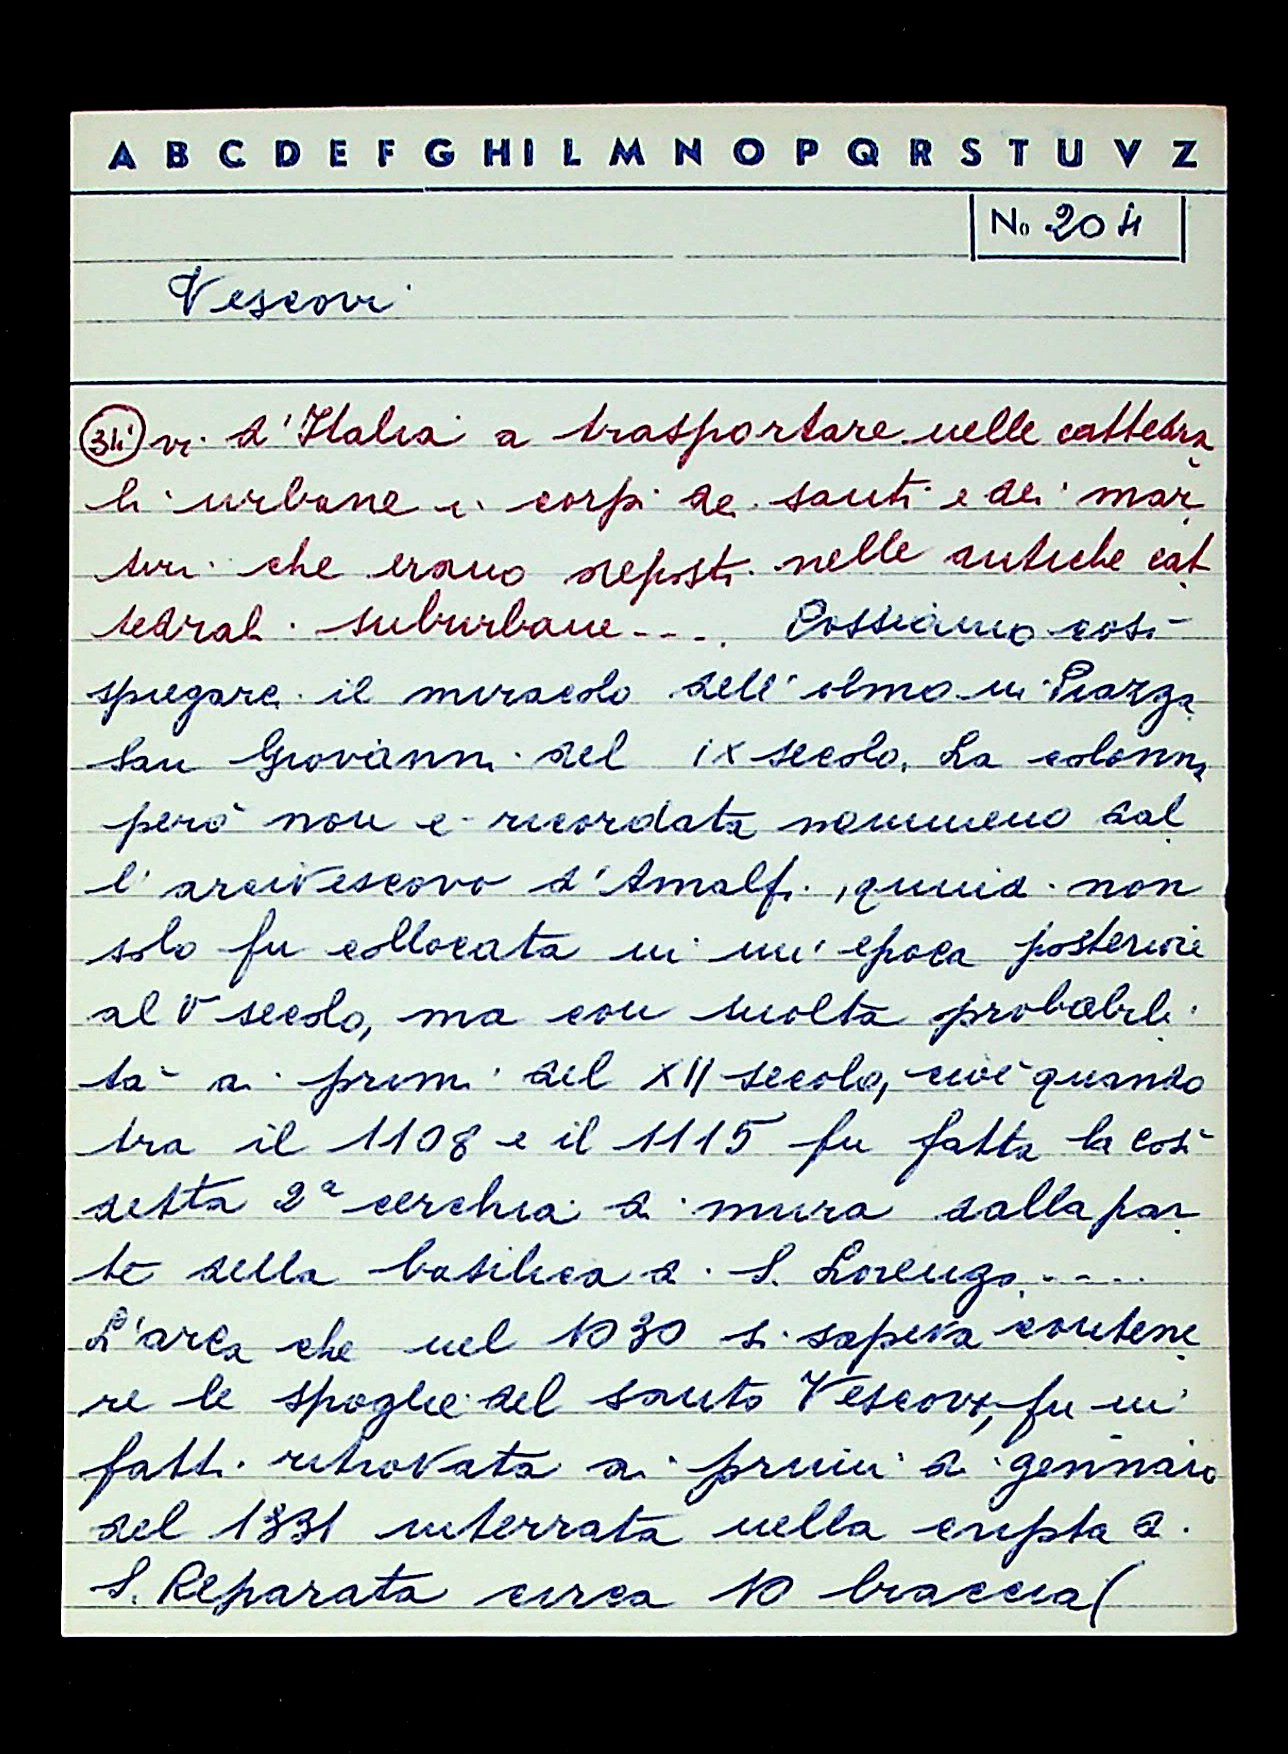 A B C D E F G H I L M N O P Q R S T U V Z
No 204
Vescovi
34 vi d'Italia a trasportare nelle cattedra
li urbane i corpi dei santi e dei mar
tiri che erano deposti nelle antiche cat
tedrali suburbane ---. Possiamo così
spiegare il miracolo dell'olmo in Piazza
San Giovanni del IX secolo. La colonna
però non è ricordata nemmeno dal
l'arcivescovo d'Amalfi, quindi non
solo fu collocata in un'epoca posteriore
al V secolo, ma con molta probabili
tà ai primi del XII secolo, cioè quando
tra il 1108 e il 1115 fu fatta la così
detta 2ª cerchia di mura dalla par
te della basilica di S. Lorenzo ----
L'arca che nel 1030 si sapeva contene
re le spoglie del santo Vescovo, fu in
fatti ritrovata ai primi di gennaio
del 1331 interrata nella cripta di
S. Reparata circa 10 braccia (